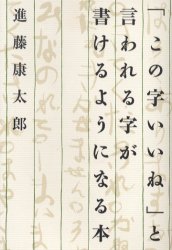 「この字いいね」と
言われる字が
書けるようになる本
進藤康太郎